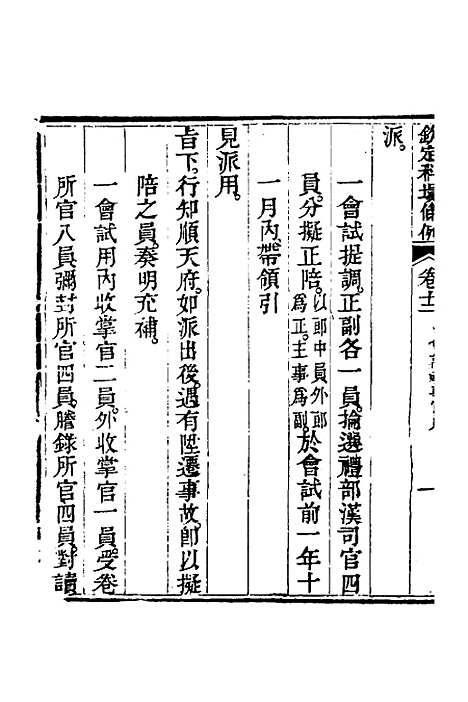 欽定科場條例 卷十二 一
派。
一會試提調。正副各一員。掄選禮部漢司官四
員。分擬正陪。以郎中員外郎爲正。主事爲副。於會試前一年十
一月內。帶領引
見派用。
旨下。行知順天府。如派出後。遇有陞遷事故。卽以擬
陪之員。奏明充補。
一會試用內收掌官二員。外收掌官一員。受卷
所官八員。彌封所官四員。謄錄所官四員。對讀